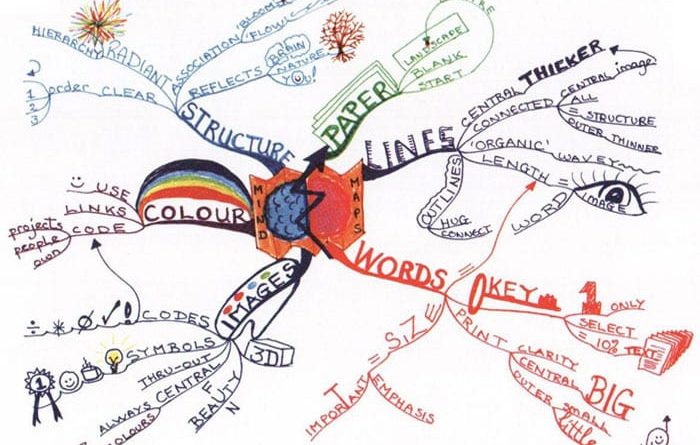 MIND
MAPS
PAPER
LANDSCAPE
BLANK
START
LINES
CENTRAL
THICKER
CONNECTED
CENTRAL image
ALL
= STRUCTURE
OUTER THINNER
'ORGANIC'
WAVEY
LENGTH =
WORD
IMAGE
OUTLINES
HUG
CONNECT
WORDS
=
KEY
1 ONLY
SELECT
= 10% TEXT
PRINT
CLARITY
CENTRAL BIG
OUTER small
little
= SIZE
IMPORTANT
EMPHASIS
IMAGES
3D
BEAUTY
FUN
CENTRAL
ALWAYS
COLOURS
THRU-OUT
SYMBOLS
1
CODES
÷ * Ø ✓ !
COLOUR
USE
LINKS
CODE
projects
people
own
STRUCTURE
CLEAR
order
1
2
3
RADIANT
HIERARCHY
ASSOCIATION
'BLOOM'
'FLOW'
REFLECTS
BRAIN
NATURE
YOU!